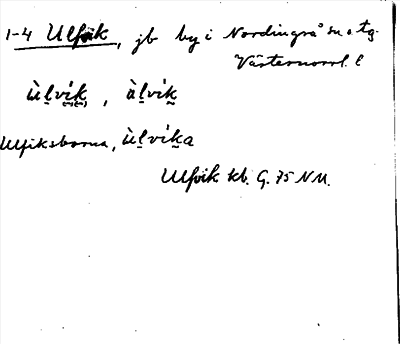 1-4 Ulfvik, jb by i Nordingrå sn o. tg.
Västernorrl. l
ùl̠vík̠, àl̠vík̠
Ulfviksborna, ùl̠vík̠a
Ulfvik kb. G. 75 NM.